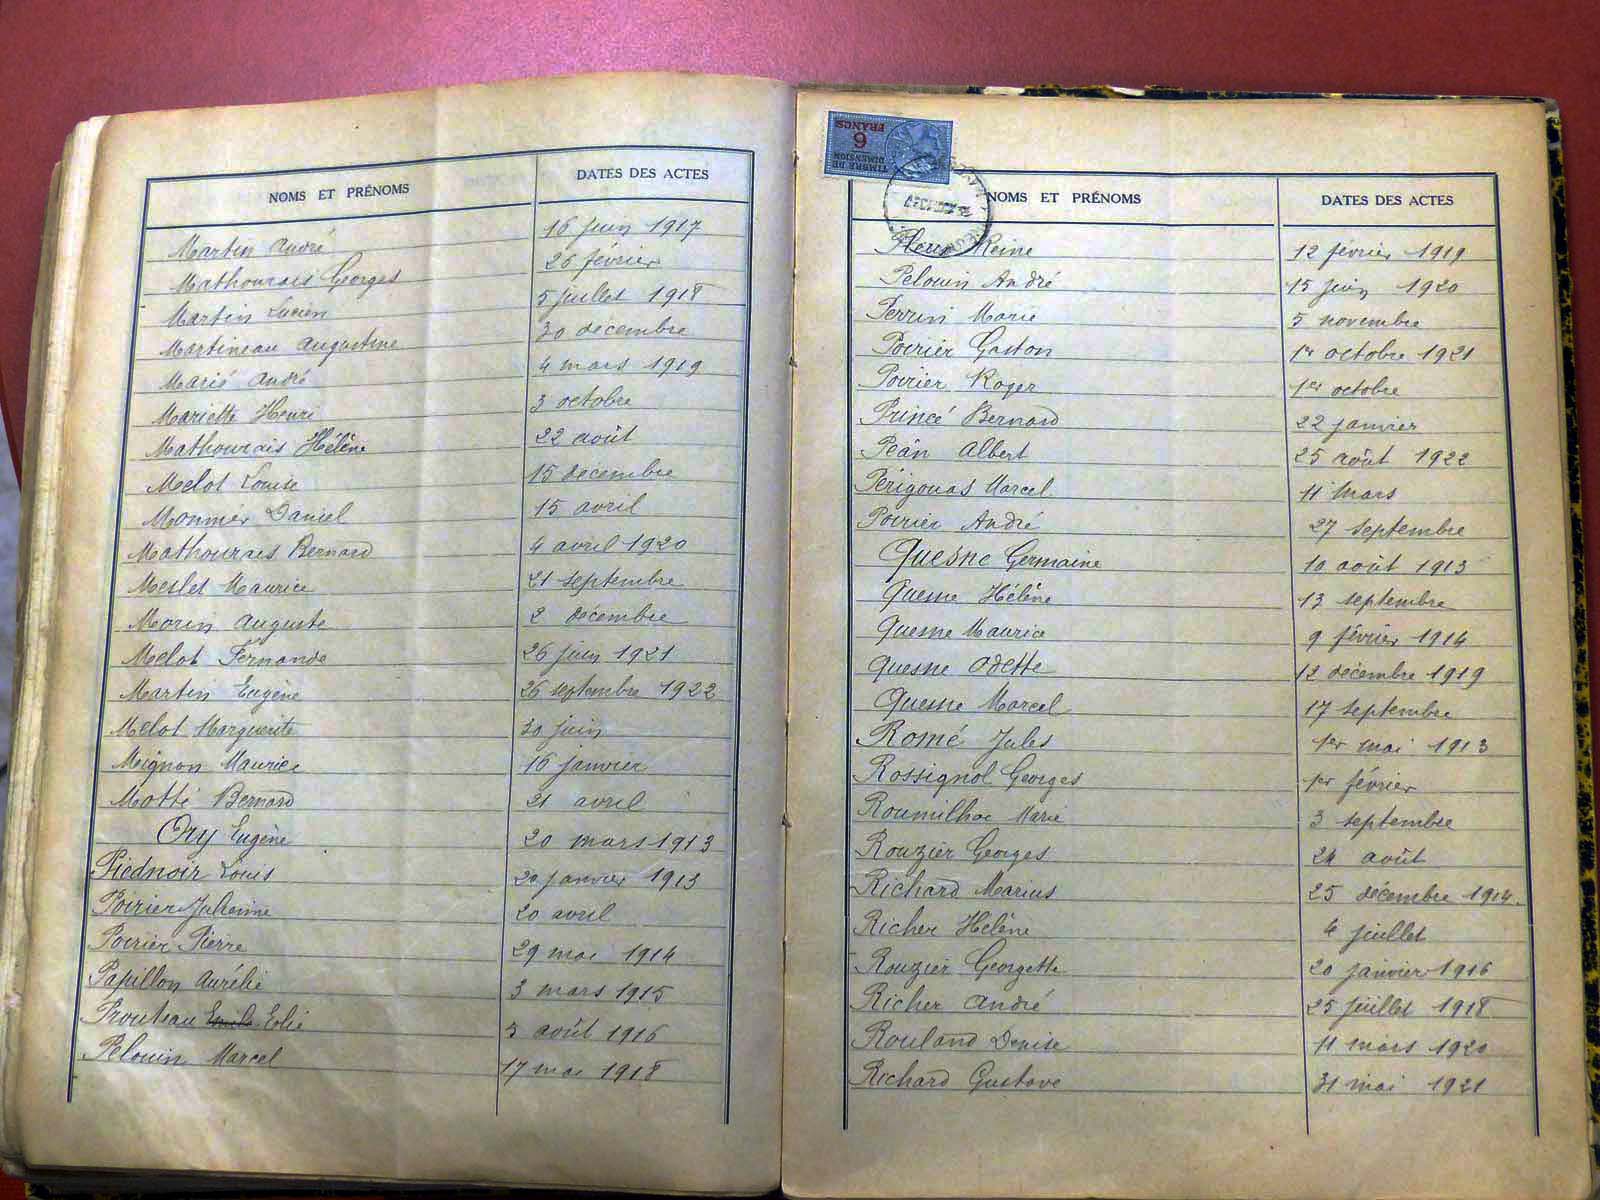 NOMS ET PRÉNOMS DATES DES ACTES
Martin André 16 juin 1917
Mathourais Georges 26 février
Martin Lucien 5 juillet 1918
Martineau Augustine 30 décembre
Marié André 4 mars 1919
Mariette Henri 3 octobre
Mathourais Hélène 22 août
Melot Louise 15 décembre
Monnier Daniel 15 avril
Mathourais Bernard 4 avril 1920
Meslet Maurice 21 septembre
Morin Auguste 2 décembre
Melot Fernande 26 juin 1921
Martin Eugène 26 septembre 1922
Melot Marguerite 30 juin
Meignon Maurice 16 janvier
Motté Bernard 21 avril
Ory Eugène 20 mars 1913
Piednoir Louis 20 janvier 1913
Poirier Julienne 20 avril
Poirier Pierre 29 mai 1914
Papillon Aurélie 3 mars 1915
Prouteau Elie 5 août 1916
Pelouin Marcel 17 mai 1918
TIMBRE DE
DIMENSION
6
FRANCS
NOMS ET PRÉNOMS DATES DES ACTES
Reine 12 février 1919
Pelouin André 15 juin 1920
Perrin Marie 5 novembre
Poirier Gaston 1er octobre 1921
Poirier Roger 1er octobre
Princé Bernard 22 janvier
Péan Albert 25 août 1922
Périgouas Marcel 11 mars
Poirier André 27 septembre
Quesne Germaine 10 août 1913
Quesne Hélène 13 septembre
Quesne Maurice 9 février 1914
Quesne Odette 12 décembre 1919
Quesne Marcel 17 septembre
Romé Jules 1er mai 1913
Rossignol Georges 1er février
Roumilhac Marie 3 septembre
Rouzier Georges 24 août
Richard Marius 25 décembre 1914.
Richer Hélène 4 juillet
Rouzier Georgette 20 janvier 1916
Richer André 25 juillet 1918
Rouland Denise 11 mars 1920
Richard Gustave 31 mai 1921